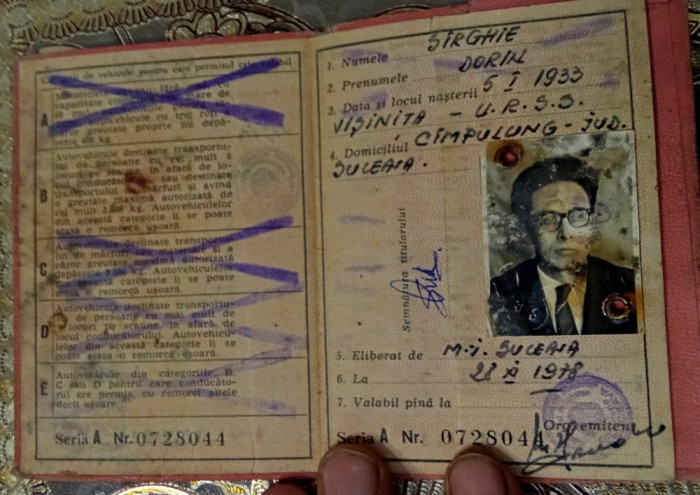 de vehicule pentru care permisul este valabil
A
B
Autovehicule destinate transportu-
lui de persoane cu cel mult 8
locuri pe scaune, în afară de lo-
cul conducătorului, sau destinate
transportului de mărfuri și avînd
o greutate maximă autorizată de
cel mult 3500 kg. Autovehiculelor
din această categorie li se poate
atașa o remorcă ușoară.
C
Autovehicule destinate transportu-
lui de mărfuri sau materiale și a
căror greutate maximă autorizată
depășește 3500 kg. Autovehiculelor
din această categorie li se poate
atașa o remorcă ușoară.
D
Autovehicule destinate transportu-
lui de persoane cu mai mult de
8 locuri pe scaune, în afară de
locul conducătorului. Autovehicu-
lelor din această categorie li se
poate atașa o remorcă ușoară.
E
Autovehicule din categoriile B,
C sau D pentru care conducăto-
rul are permis, cu remorci altele
decît ușoare.
Seria A Nr. 0728044
1. Numele SÎRGHIE
2. Prenumele DORIN
3. Data și locul nașterii 5 I 1933
VIȘINITA - U.R.S.S.
4. Domiciliul CÎMPULUNG - JUD.
SUCEAVA.
Semnătura titularului
5. Eliberat de M.I. SUCEAVA
6. La 28 XI 1978
7. Valabil pînă la
Org. emitent
Seria A Nr. 0728044